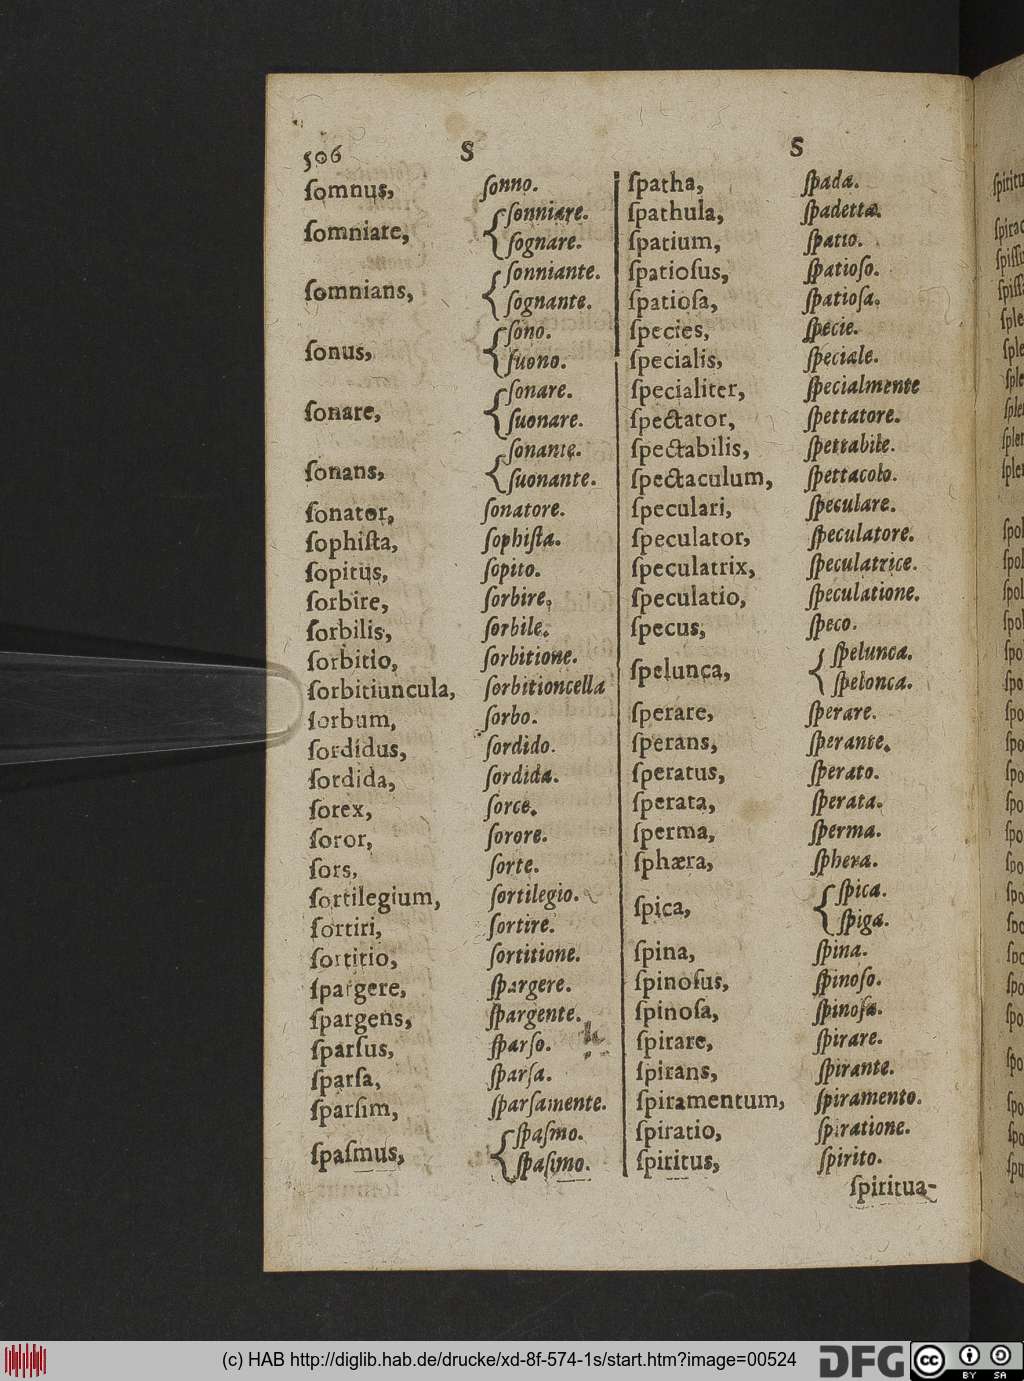 506 S S
ſomnus, ſonno.
ſomniare, ſonniare.
ſognare.
ſomnians, ſonniante.
ſognante.
ſonus, ſono.
ſuono.
ſonare, ſonare.
ſuonare.
ſonans, ſonante.
ſuonante.
ſonator, ſonatore.
ſophiſta, ſophiſta.
ſopitus, ſopito.
ſorbire, ſorbire,
ſorbilis, ſorbile.
ſorbitio, ſorbitione.
ſorbitiuncula, ſorbitioncella
ſorbum, ſorbo.
ſordidus, ſordido.
ſordida, ſordida.
ſorex, ſorce.
ſoror, ſorore.
ſors, ſorte.
ſortilegium, ſortilegio.
ſortiri, ſortire.
ſortitio, ſortitione.
ſpargere, ſpargere.
ſpargens, ſpargente.
ſparſus, ſparſo.
ſparſa, ſparſa.
ſparſim, ſparſamente.
ſpaſmus, ſpaſmo.
ſpaſimo.
ſpatha, ſpada.
ſpathula, ſpadetta.
ſpatium, ſpatio.
ſpatioſus, ſpatioſo.
ſpatioſa, ſpatioſa.
ſpecies, ſpecie.
ſpecialis, ſpeciale.
ſpecialiter, ſpecialmente
ſpectator, ſpettatore.
ſpectabilis, ſpettabile.
ſpectaculum, ſpettacolo.
ſpeculari, ſpeculare.
ſpeculator, ſpeculatore.
ſpeculatrix, ſpeculatrice.
ſpeculatio, ſpeculatione.
ſpecus, ſpeco.
ſpelunca, ſpelunca.
ſpelonca.
ſperare, ſperare.
ſperans, ſperante.
ſperatus, ſperato.
ſperata, ſperata.
ſperma, ſperma.
ſphæra, ſphera.
ſpica, ſpica.
ſpiga.
ſpina, ſpina.
ſpinoſus, ſpinoſo.
ſpinoſa, ſpinoſa.
ſpirare, ſpirare.
ſpirans, ſpirante.
ſpiramentum, ſpiramento.
ſpiratio, ſpiratione.
ſpiritus, ſpirito.
ſpiritua-
(c) HAB http://diglib.hab.de/drucke/xd-8f-574-1s/start.htm?image=00524
DFG
cc BY SA